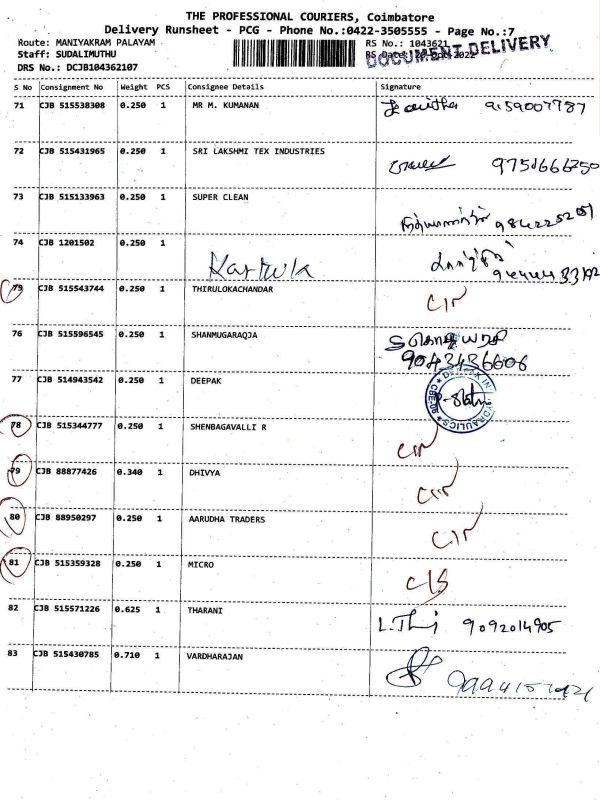 THE PROFESSIONAL COURIERS, Coimbatore
Delivery Runsheet - PCG - Phone No.:0422-3505555 - Page No.:7
Route: MANIYAKRAM PALAYAM RS No.: 1043621
Staff: SUDALIMUTHU RS Date: 2022
DOCUMENT DELIVERY
DRS No.: DCJB104362107
S No Consignment No Weight PCS Consignee Details Signature
71 CJB 515538308 0.250 1 MR M. KUMANAN 9159007787
72 CJB 515431965 0.250 1 SRI LAKSHMI TEX INDUSTRIES
73 CJB 515133963 0.250 1 SUPER CLEAN
74 CJB 1201502 0.250 1
75 CJB 515543744 0.250 1 THIRULOKACHANDAR
76 CJB 515596545 0.250 1 SHANMUGARAQJA
9043436606
77 CJB 514943542 0.250 1 DEEPAK
78 CJB 515344777 0.250 1 SHENBAGAVALLI R
79 CJB 88877426 0.340 1 DHIVYA
80 CJB 88950297 0.250 1 AARUDHA TRADERS
81 CJB 515359328 0.250 1 MICRO C/S
82 CJB 515571226 0.625 1 THARANI 9092014905
83 CJB 515430785 0.710 1 VARDHARAJAN